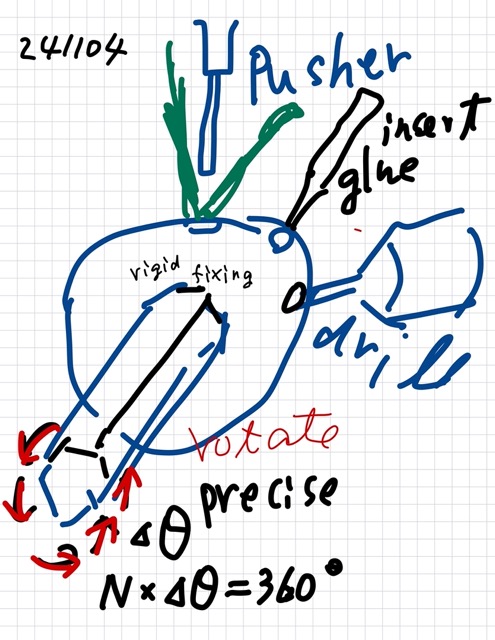 241104
Pusher
insert
glue
rigid fixing
drill
rotate
precise
Δθ
N×Δθ=360°